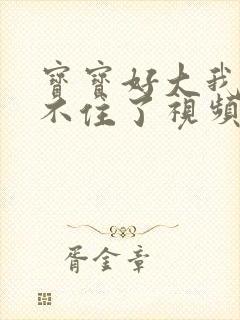 寶寶好大我
不住了視頻
胥金章